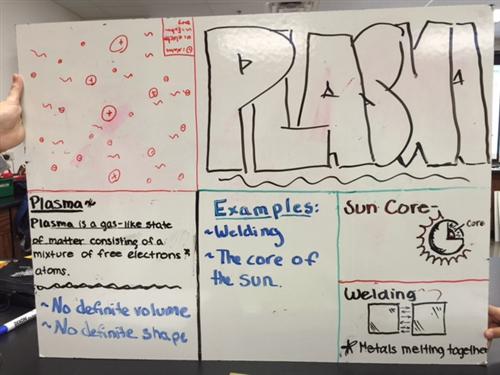 PLASMA
Plasma*
Plasma is a gas-like state
of matter consisting of a
mixture of free electrons*
atoms.
~No definite volume
~No definite shape
Examples:
~Welding
~The core of
the sun.
Sun Core-
Core
Welding
*Metals melting together